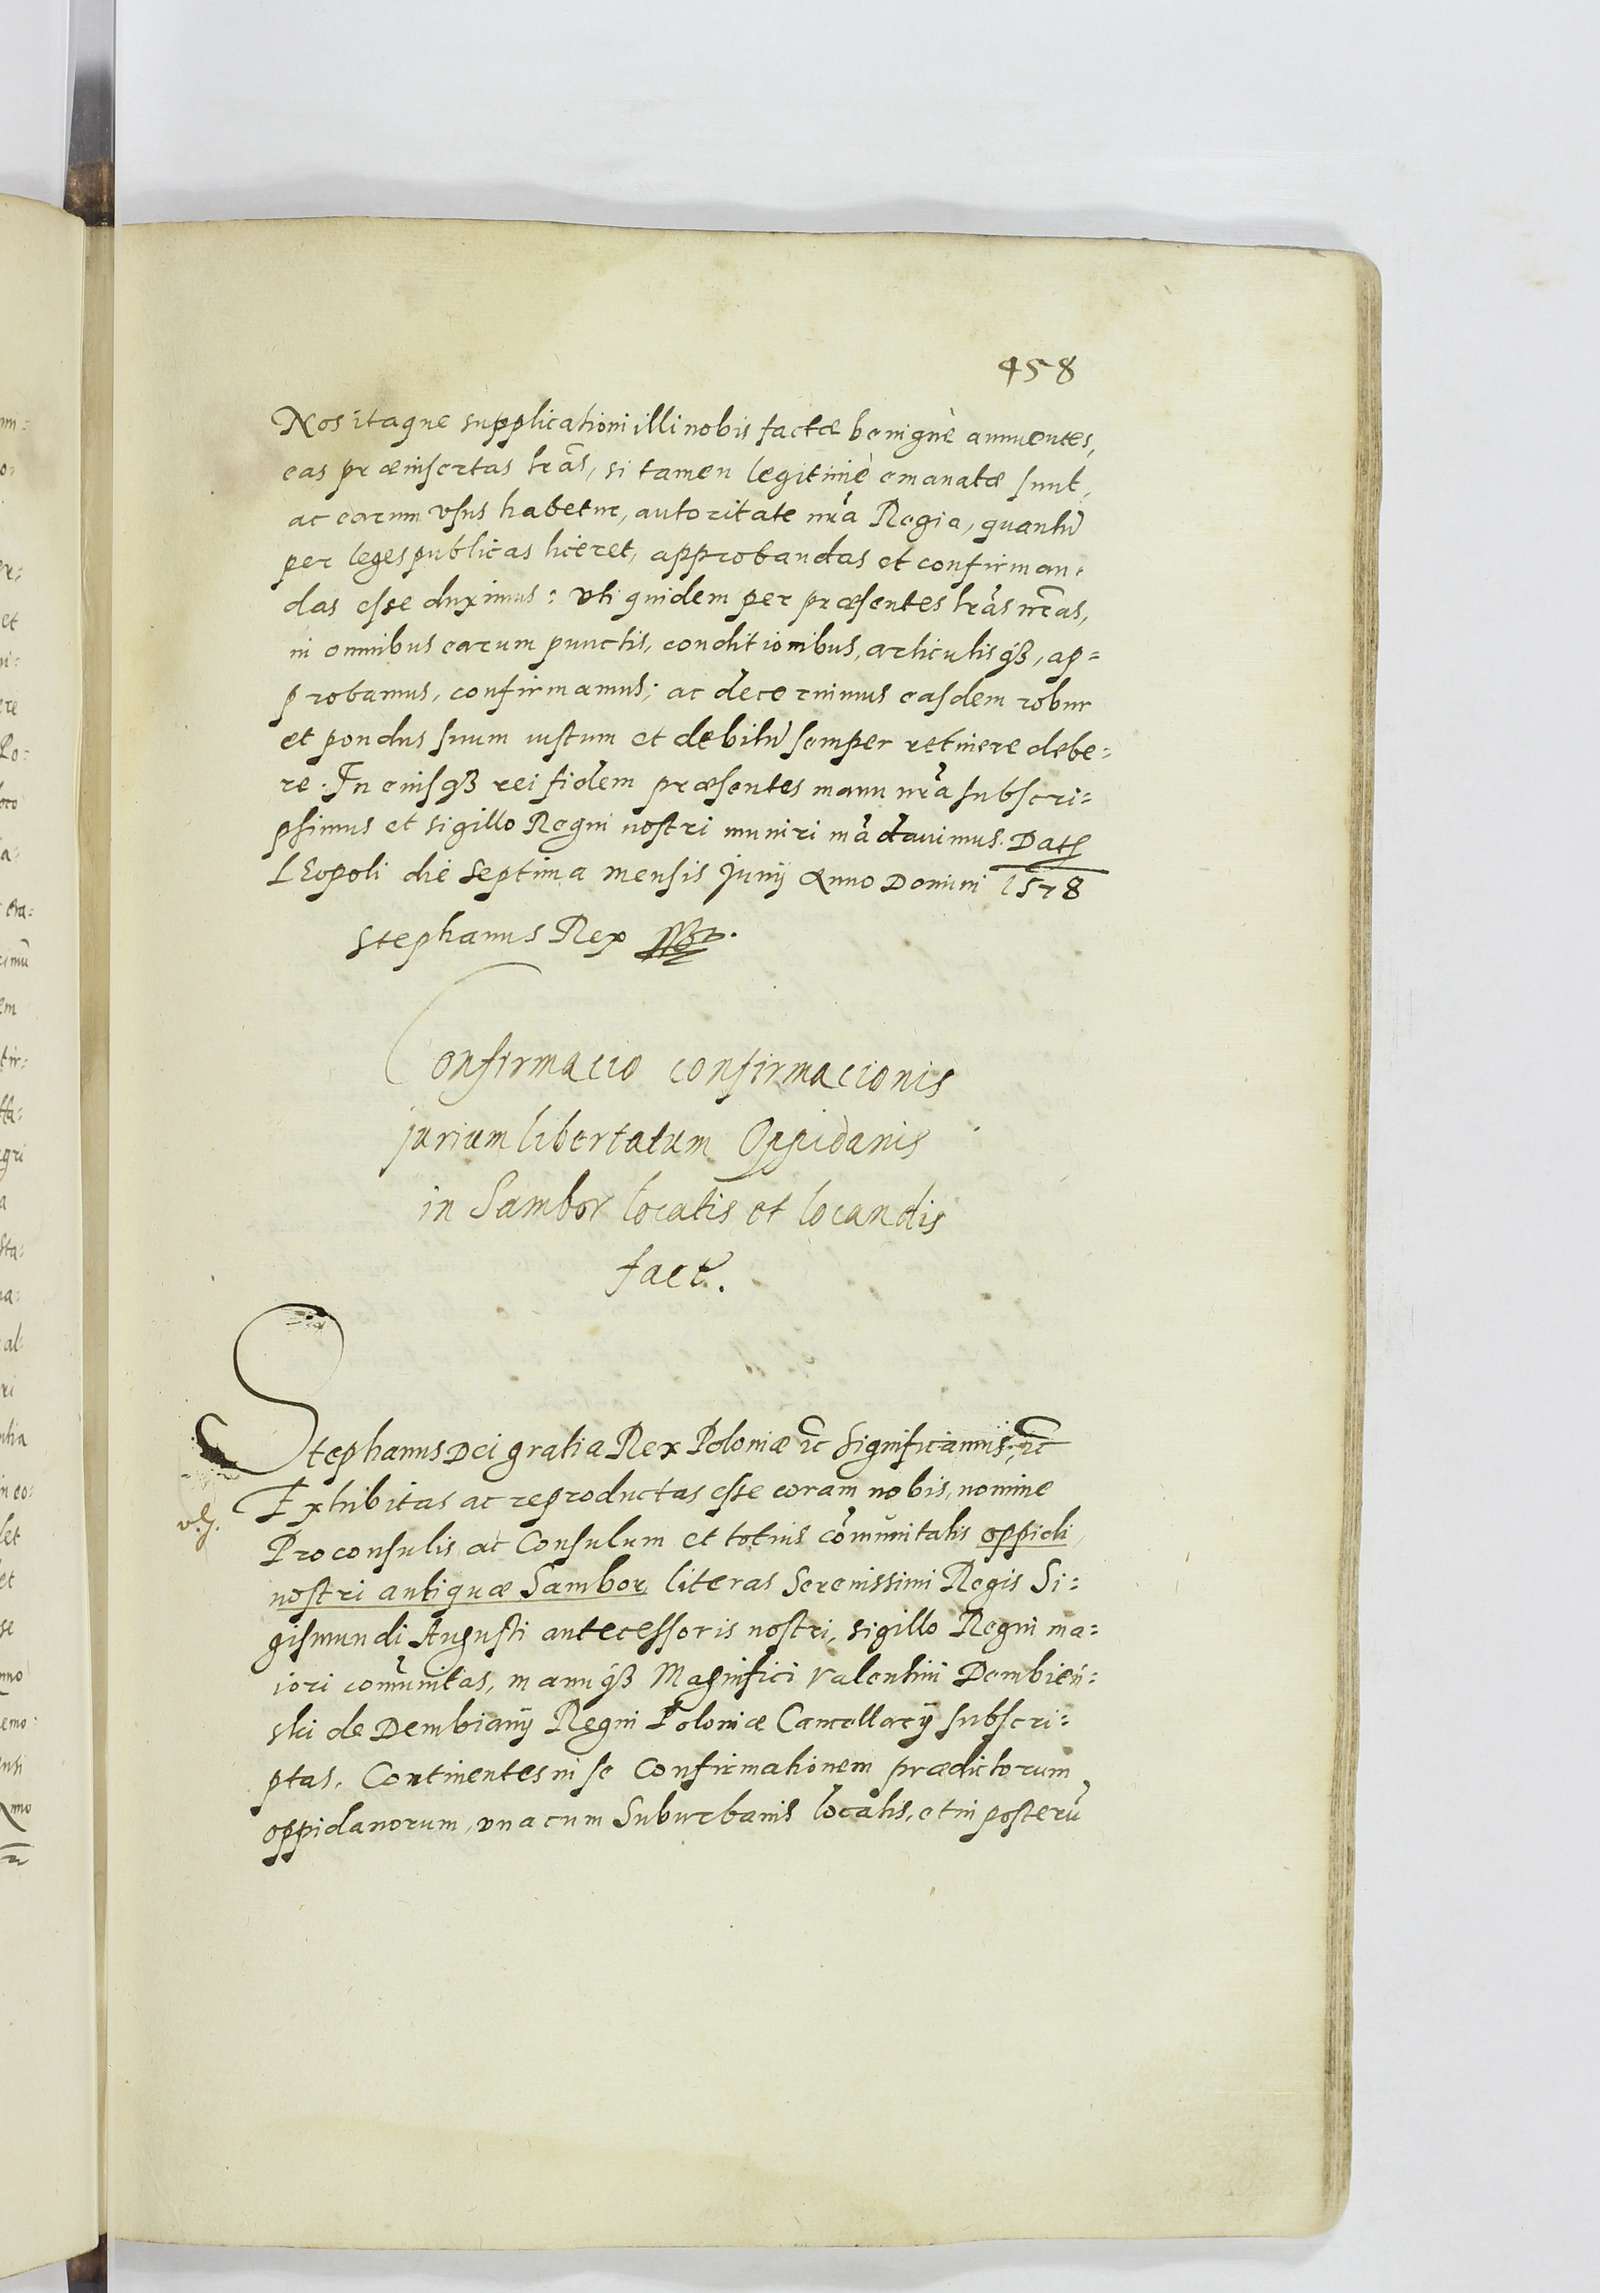 458
Nos itaque supplicationi illi nobis factæ benignè annuentes,
eas præinsertas lrãs, si tamen legitimè emanatæ sunt,
ac earum vsus habetur, autoritate nrã Regia, quantũ
per leges publicas liceret, approbandas et confirman=
das esse duximus: vti quidem per præsentes lrãs nrãs,
in omnibus earum punctis, conditionibus, articulisqꝫ, ap=
probamus, confirmamus; ac decernimus easdem robur
et pondus suum iustum et debitũ semper retinere debe=
re. In cuiusqꝫ rei fidem præsentes manu nrã subscri=
psimus et sigillo Regni nostri muniri mãdauimus. Dat
LEopoli die septima mensis Junij Anno Domini 1578
Stephanus Rex
Confirmacio confirmacionis
jurium libertatum Oppidanis
in Sambor locatis et locandis
fact.
Stephanus Dei gratia Rex Poloniæ ec̃ Significamus, ec̃
Exhibitas ac reproductas esse coram nobis, nomine
Proconsulis ac Consulum et totius cõmunitatis oppidi
nostri antiquæ Sambor literas Serenissimi Regis Si=
gismundi Augusti antecessoris nostri, sigillo Regni ma=
iori cõmunitas, manuqꝫ Magnifici Valentini Dembień=
ski de Dembiany Regni Poloniæ Cancellarij subscri=
ptas, Continentes in se Confirmationem prædictorum
oppidanorum, vna cum Suburbanis locatis, et in posterũ